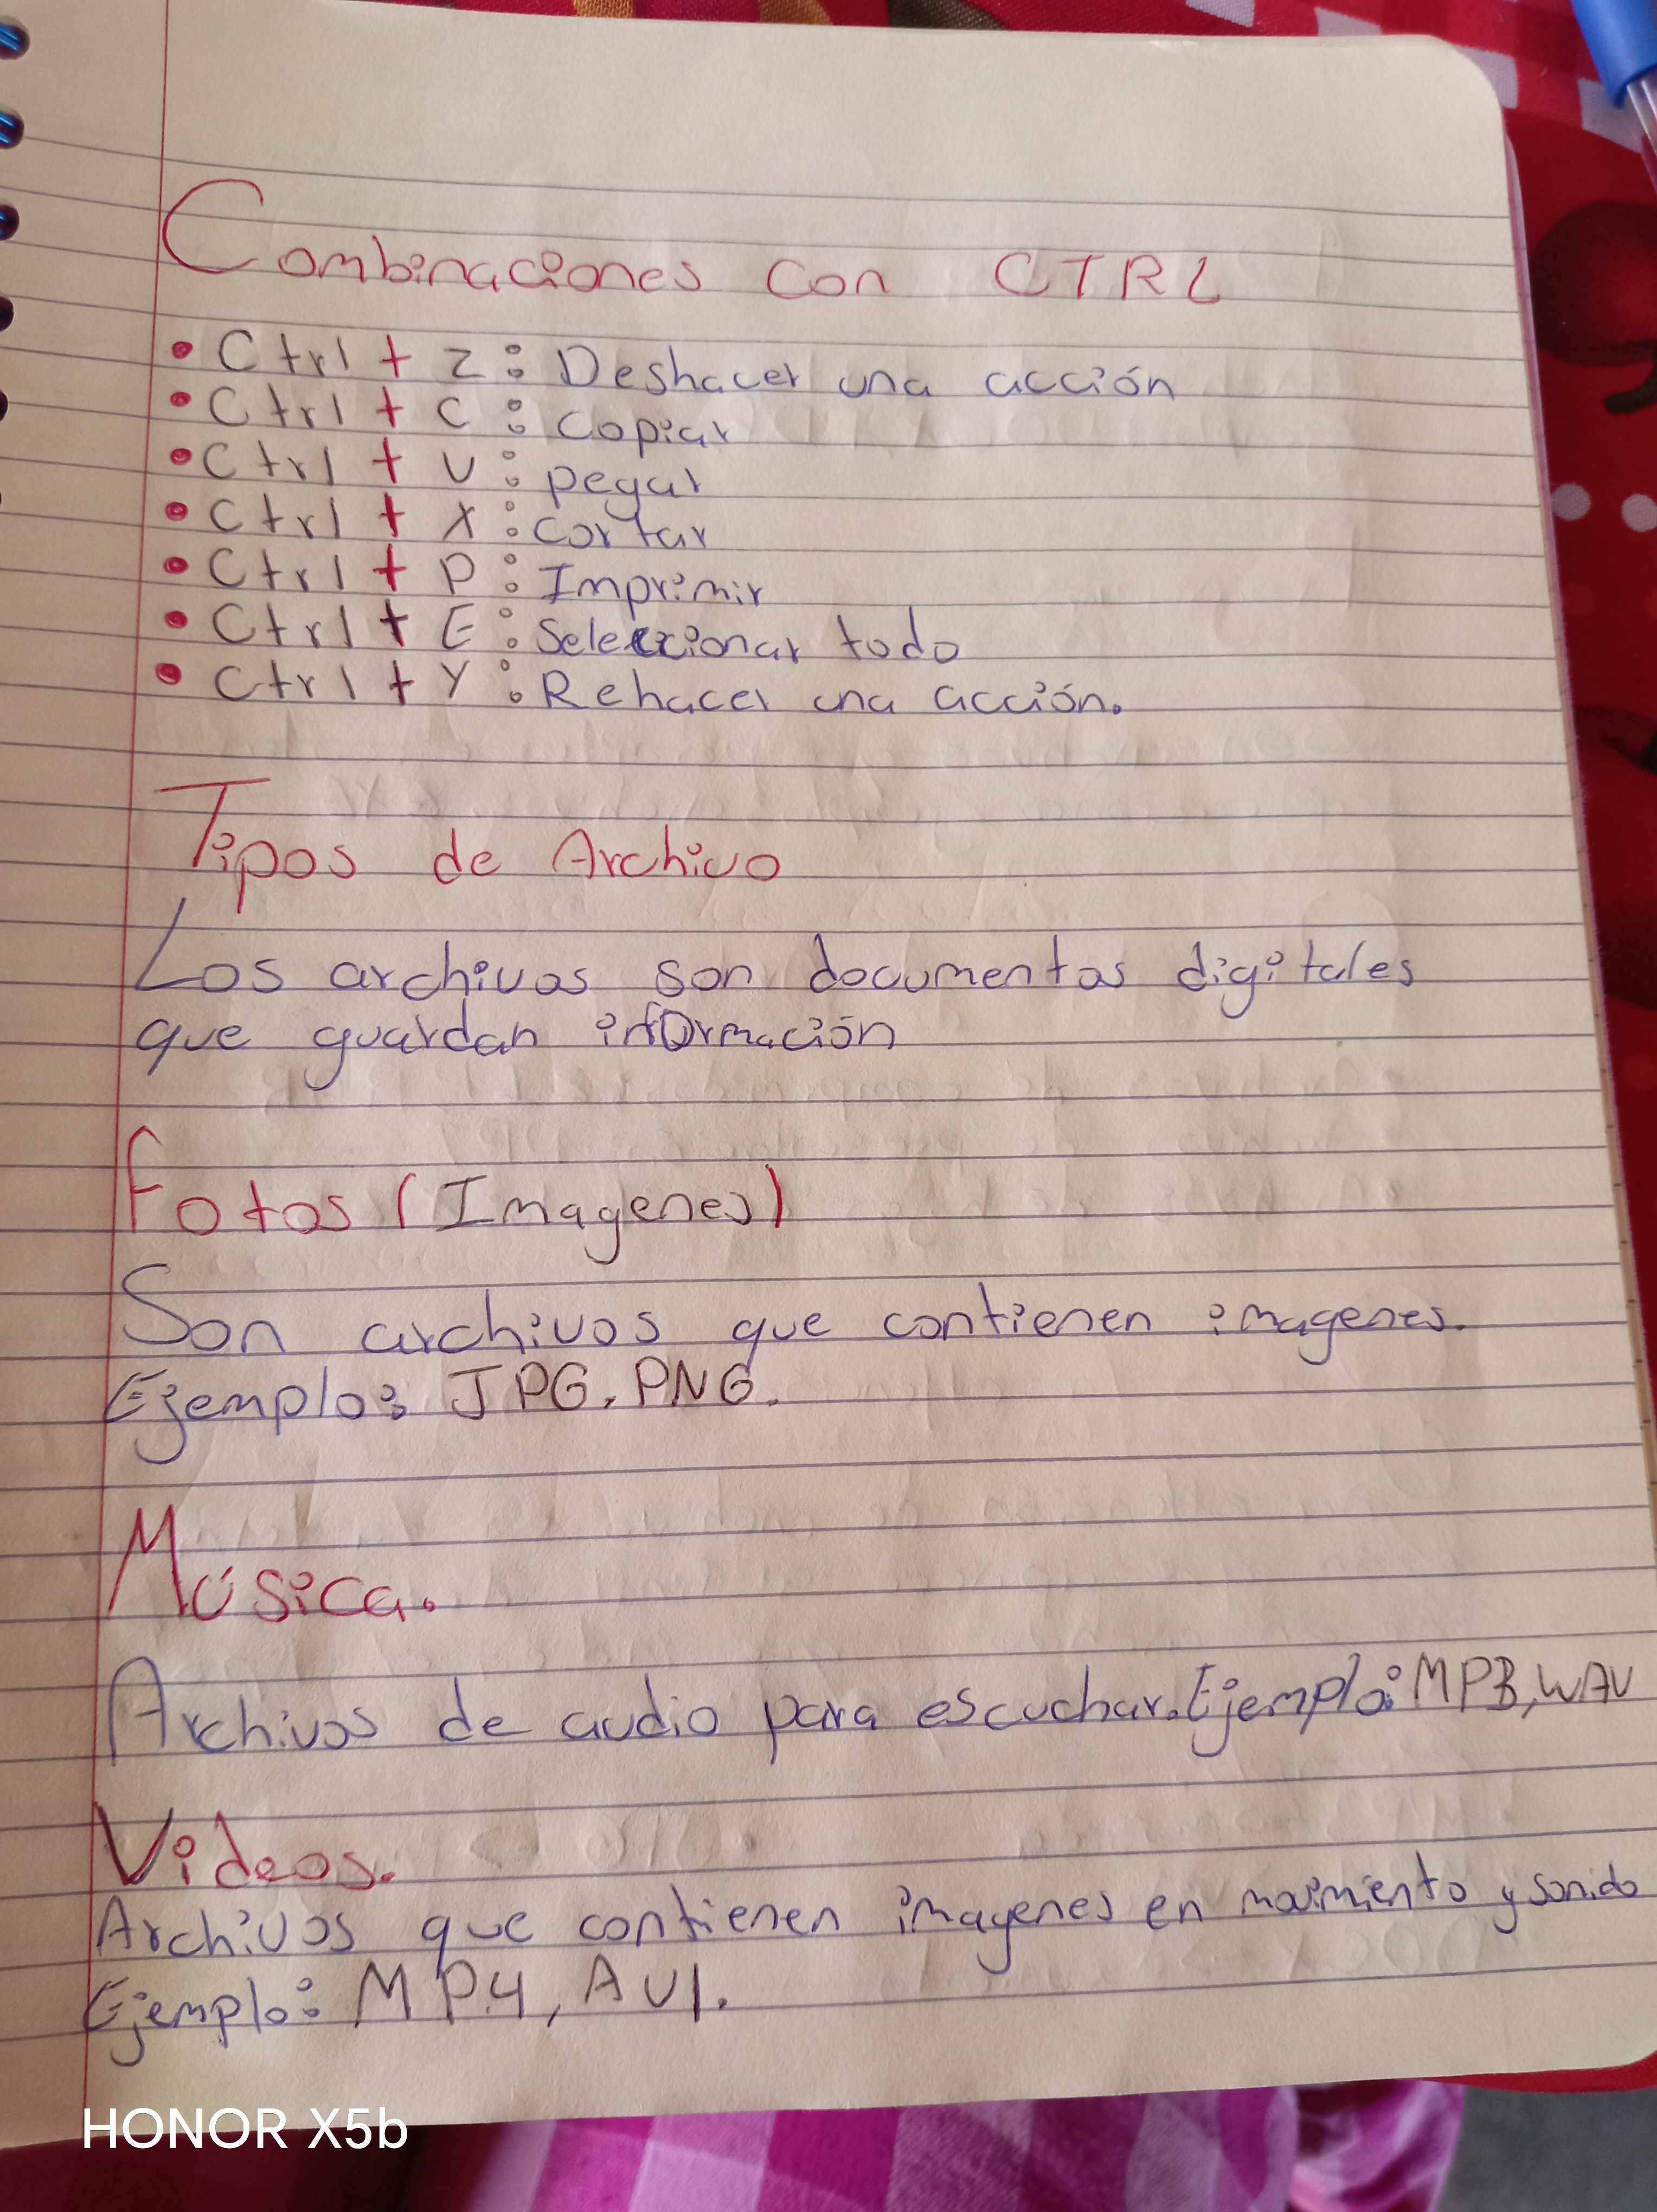 Combinaciones con CTRL
• Ctrl + Z: Deshacer una acción
• Ctrl + C: Copiar
• Ctrl + V: pegar
• Ctrl + X: Cortar
• Ctrl + P: Imprimir
• Ctrl + E: Seleccionar todo
• Ctrl + Y: Rehacer una acción.
Tipos de Archivo
Los archivos son documentos digitales
que guardan información
Fotos (Imagenes)
Son archivos que contienen imagenes.
Ejemplo: JPG, PNG.
Música.
Archivos de audio para escuchar. Ejemplo: MP3, WAV
Videos.
Archivos que contienen imagenes en movimiento y sonido
Ejemplo: MP4, AVI.
HONOR X5b